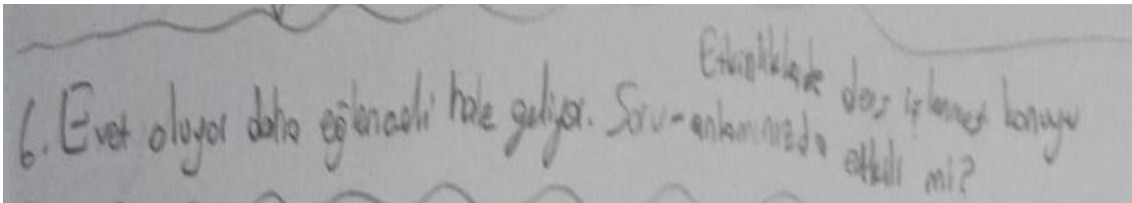 6. Evet oluyor daha eğlenceli hale geliyor. Soru- Etkinliklerle ders işlemek konuyu
anlamanızda etkili mi?